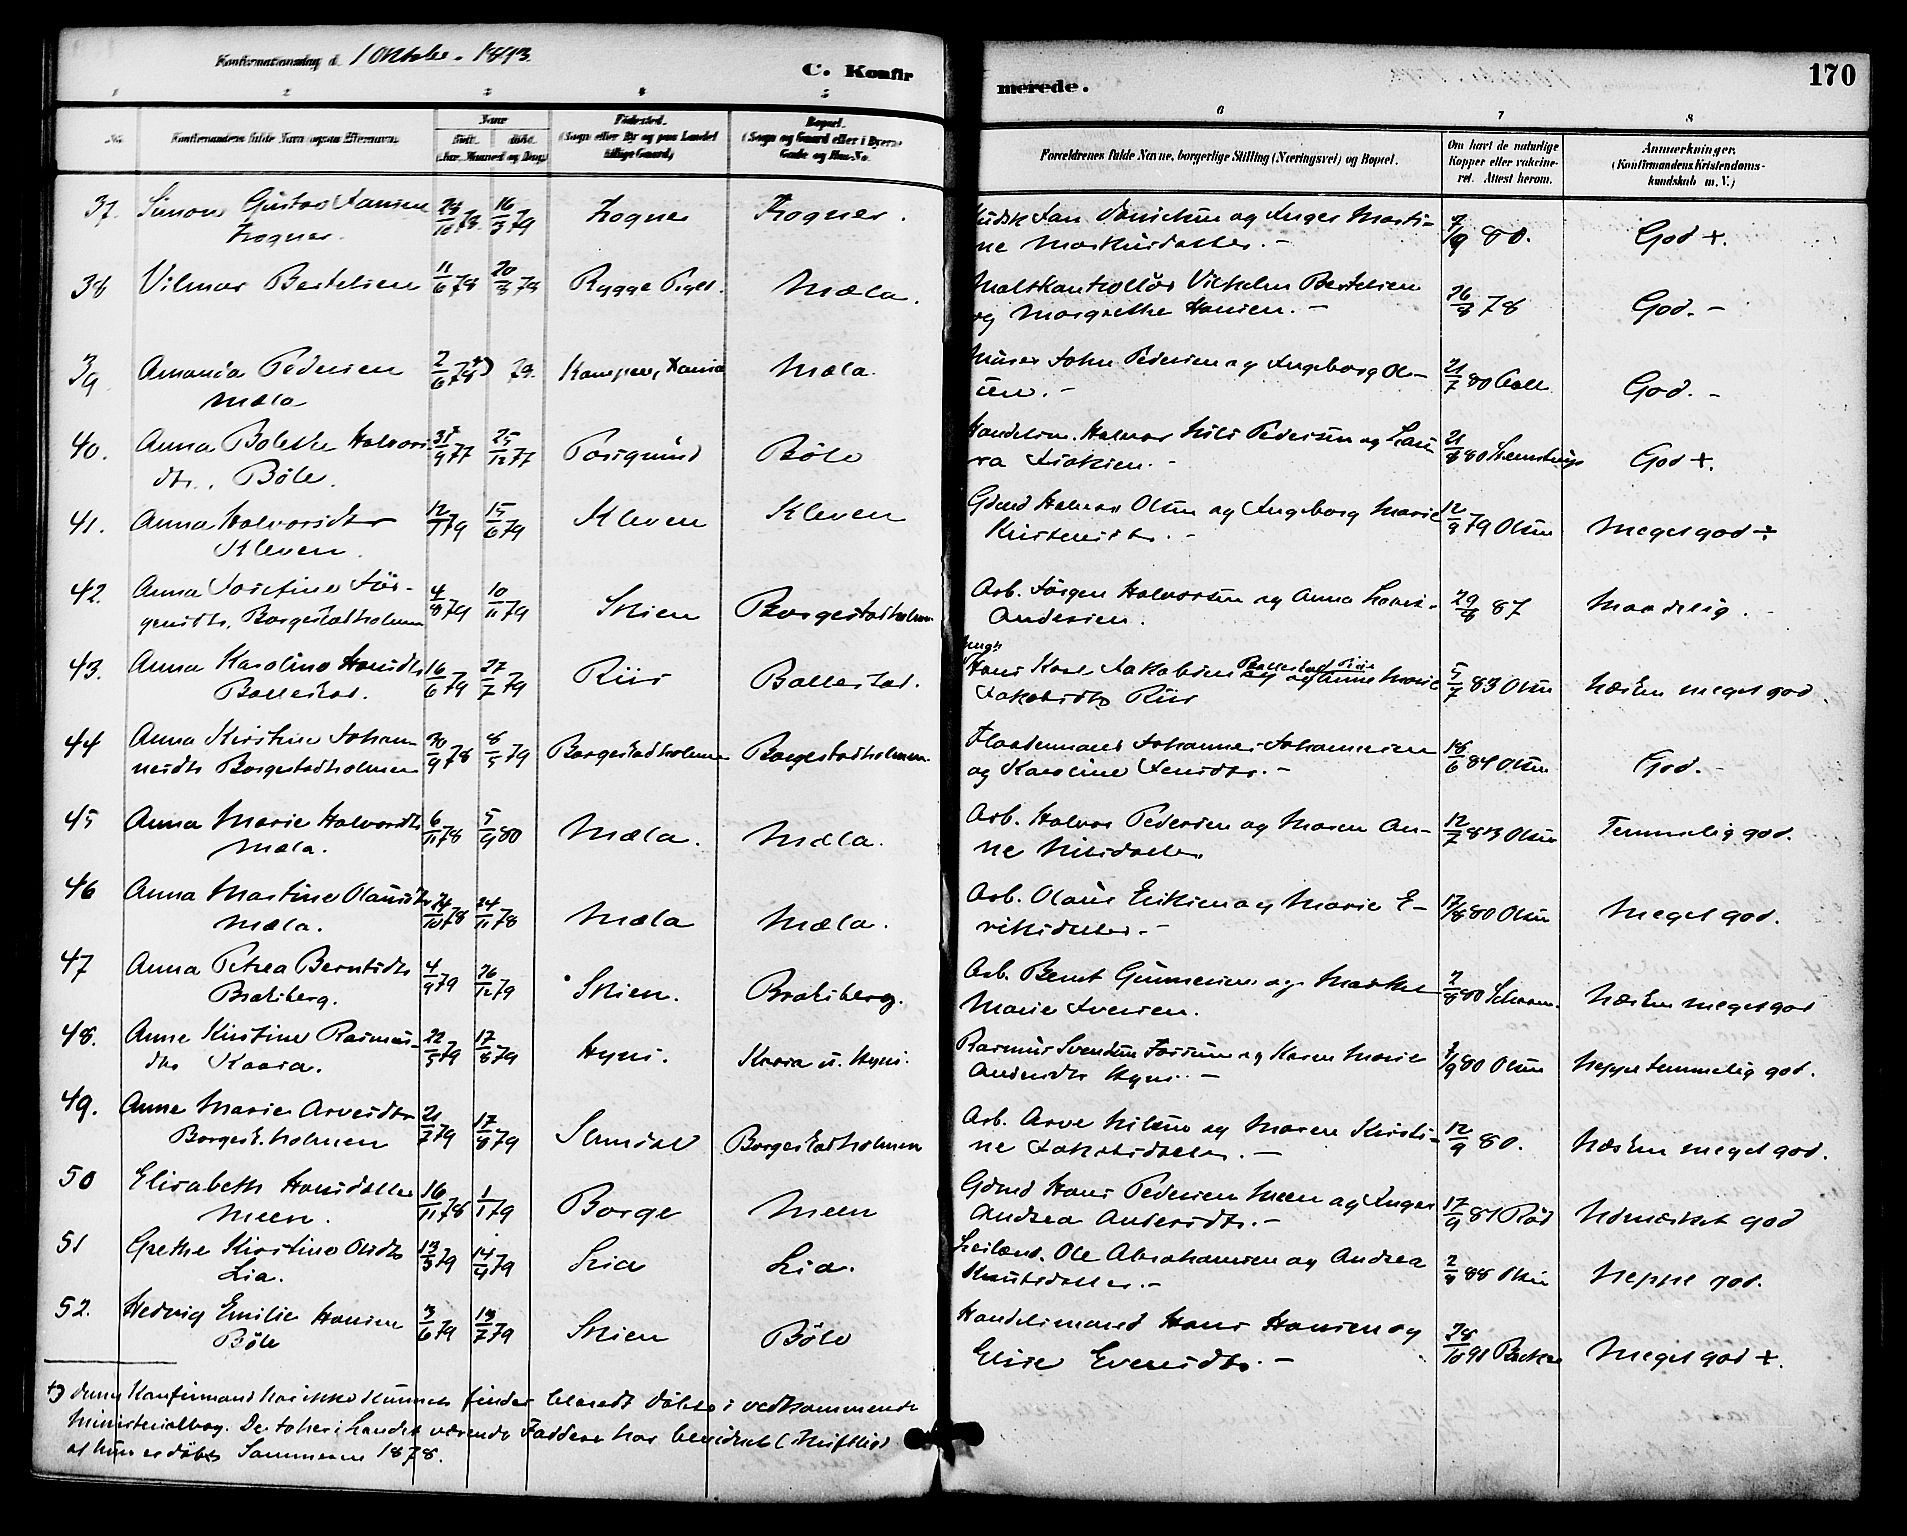 Konfirmationsdag d. 1 Oktobr. 1893.
C. Konfir
merede.
170
1 2 3 4 5 6 7 8
No.
Konfirmandens fulde Navn ogsaa Efternavn.
Naar
født. døbt.
(Aar, Maaned og Dag.)
Fødested.
(Sogn eller By og paa Landet
tillige Gaard)
Bopæl.
(Sogn og Gaard eller i Byerne
Gade og Hus-No.
Forældrenes fulde Navne, borgerlige Stilling (Næringsvei) og Bopæl.
Om havt de naturlige
Kopper eller vakcine-
ret. Attest herom.
Anmerkninger.
(Konfirmandens Kristendoms-
kundskab m. V.)
37. Simon Gustav Jansen 16/3 79
Inger Marti-
ne God +.
38 Vilmar Bertelsen 11/6 78 20/3 79 Rygge Prgd. Mæla.
Maltkontrollør Vilhelm Bertelsen
og Margrethe Hansen. – 78 God. –
39 Amanda Pedersen 2/6 78 *) 79. Mæla.
Mæla
Murer John Pedersen og Ingeborg Ol-
sen. – 21/7 80 God. –
40. Anna Bolette Halvors- 77 25/12 77 Porsgrund Böle
dtr., Böle.
Halvor Nils Pedersen og Lau-
ra Isaksen. – 21/8 80 God +.
41. Anna Halvorsdtr 79 15/6 79 Kleven Kleven
Kleven.
Gdmd Halvor Olsen og Ingeborg Marie
Kristensdtr. – 12/9 79 Olsen Meget god ÷
42. Anna Josefine Jör- 4/8 79 10/11 79 Skien Borgestadholmen
gensdtr. Borgestadholmen
Arb. Jörgen Halvorsen og Anna
Andersen. 29/8 87 Maadelig.
43. Anna Karoline Hansdtr 16/6 79 27/7 79 Riis Ballestad.
Ballestad.
Ungk
Hans Karl Jakobsen Ballestad og Anne Marie
Jakobsdtr Riis 5/7 83 Olsen Næsten meget god
44 Anna Kirstine Johan- 30/9 78 79 Borgestadholmen Borgestadholmen.
nesdtr Borgestadholmen
Flaademand Johannes Johannesen
og Karoline Jensdtr. – 18/6 84 Olsen God. –
45 Anna Marie Halvorsdtr 6/11 78 5/9 80 Mæla. Mæla.
Mæla.
Arb. Halvor Pedersen og Maren An-
ne Nilsdatter. 12/7 83 Olsen Temmelig god.
46 Anna Martine Olausdtr 24/10 78 24/11 78 Mæla Mæla.
Mæla.
Arb. Olaus Eriksen og Marie E-
riksdatter. – 17/8 80 Olsen Meget god.
47 Anna Petrea Berntsdtr 4/9 79 26/12 79 Skien. Bratsberg.
Bratsberg.
Arb. Bernt Gunnersen og Marthe
Marie Iversen. 2/8 80 Næsten meget god
48. Anne Kirstine Rasmus- 22/5 79 17/8 79 Hyni. Kaasa u. Hyni.
dtr Kaasa.
Rasmus Svendsen Fossum og Karen Marie
Andersdtr Hyni. – 80 Olsen Neppe temmelig god.
49. Anne Marie Arvesdtr 21/7 79 17/8 79 Borgestadholmen
Borgest.holmen
Arb. Arve Nilsen og Maren Kirsti-
ne Jakobsdatter. – 12/9 80. Næsten meget god.
50 Elisabeth Hansdatter 16/11 78 1/1 79 Borge Meen
Meen.
Gdmd Hans Pedersen Meen og Inger
Andrea Andersdtr. – 17/9 81 Rød Udmærket god
51 Grethe Kirstine Olsdtr 13/3 79 14/4 79 Lia Lia.
Lia.
Leilænd. Ole Abrahamsen og Andrea
Knutsdatter. – 88 Olsen Neppe god.
52. Hedvig Emilie Hansen 3/6 79 13/7 79 Skien Böle
Böle
Handelsmand Hans Hansen og
Elise Evensdtr. – 28/10 91 Meget god +.
*) Denne Konfirmand har ikke kunnet findes blandt döbte i vedkommende
Ministerialbog. De to her i Landet værende Faddere har bevidnet (skriftlig)
at hun er döbt Sommeren 1878.